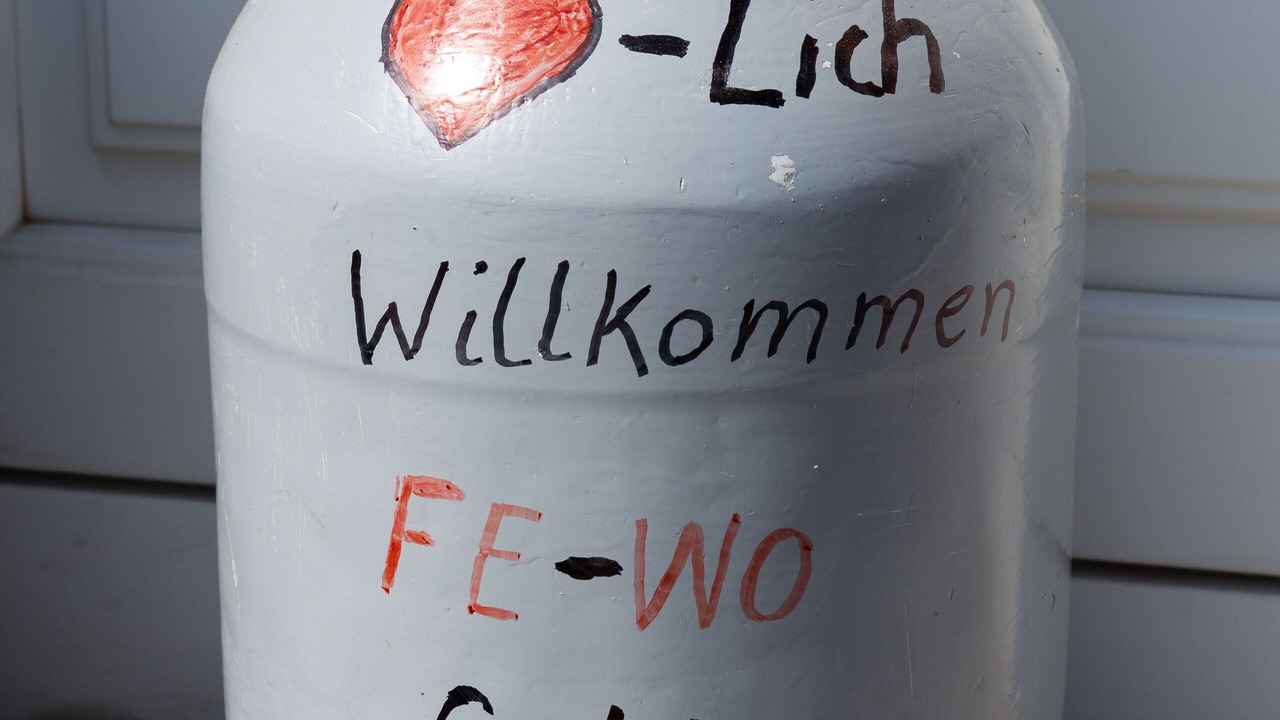 -Lich
Willkommen
FE-WO